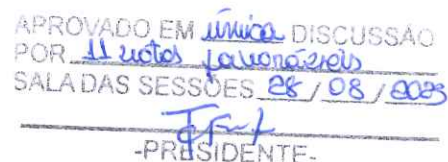 APROVADO EM única DISCUSSÃO
POR 11 votos favoráveis
SALA DAS SESSÕES 28 / 08 / 2023
-PRESIDENTE-